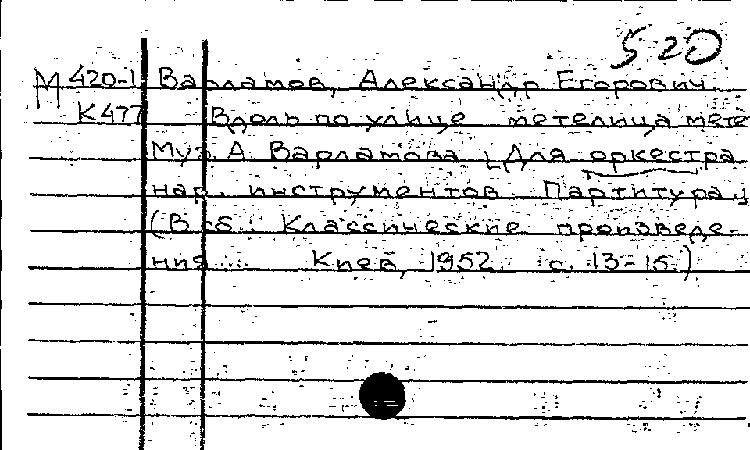 520
М 420-1 Варламов, Александр Егорович
К477 Вдоль по улице метелица мете
Муз. А. Варламова [Для оркестра
нар. инструментов. Партитура.]
(В сб.: Классические произведе-
ния... Киев, 1952. с. 13-15.)